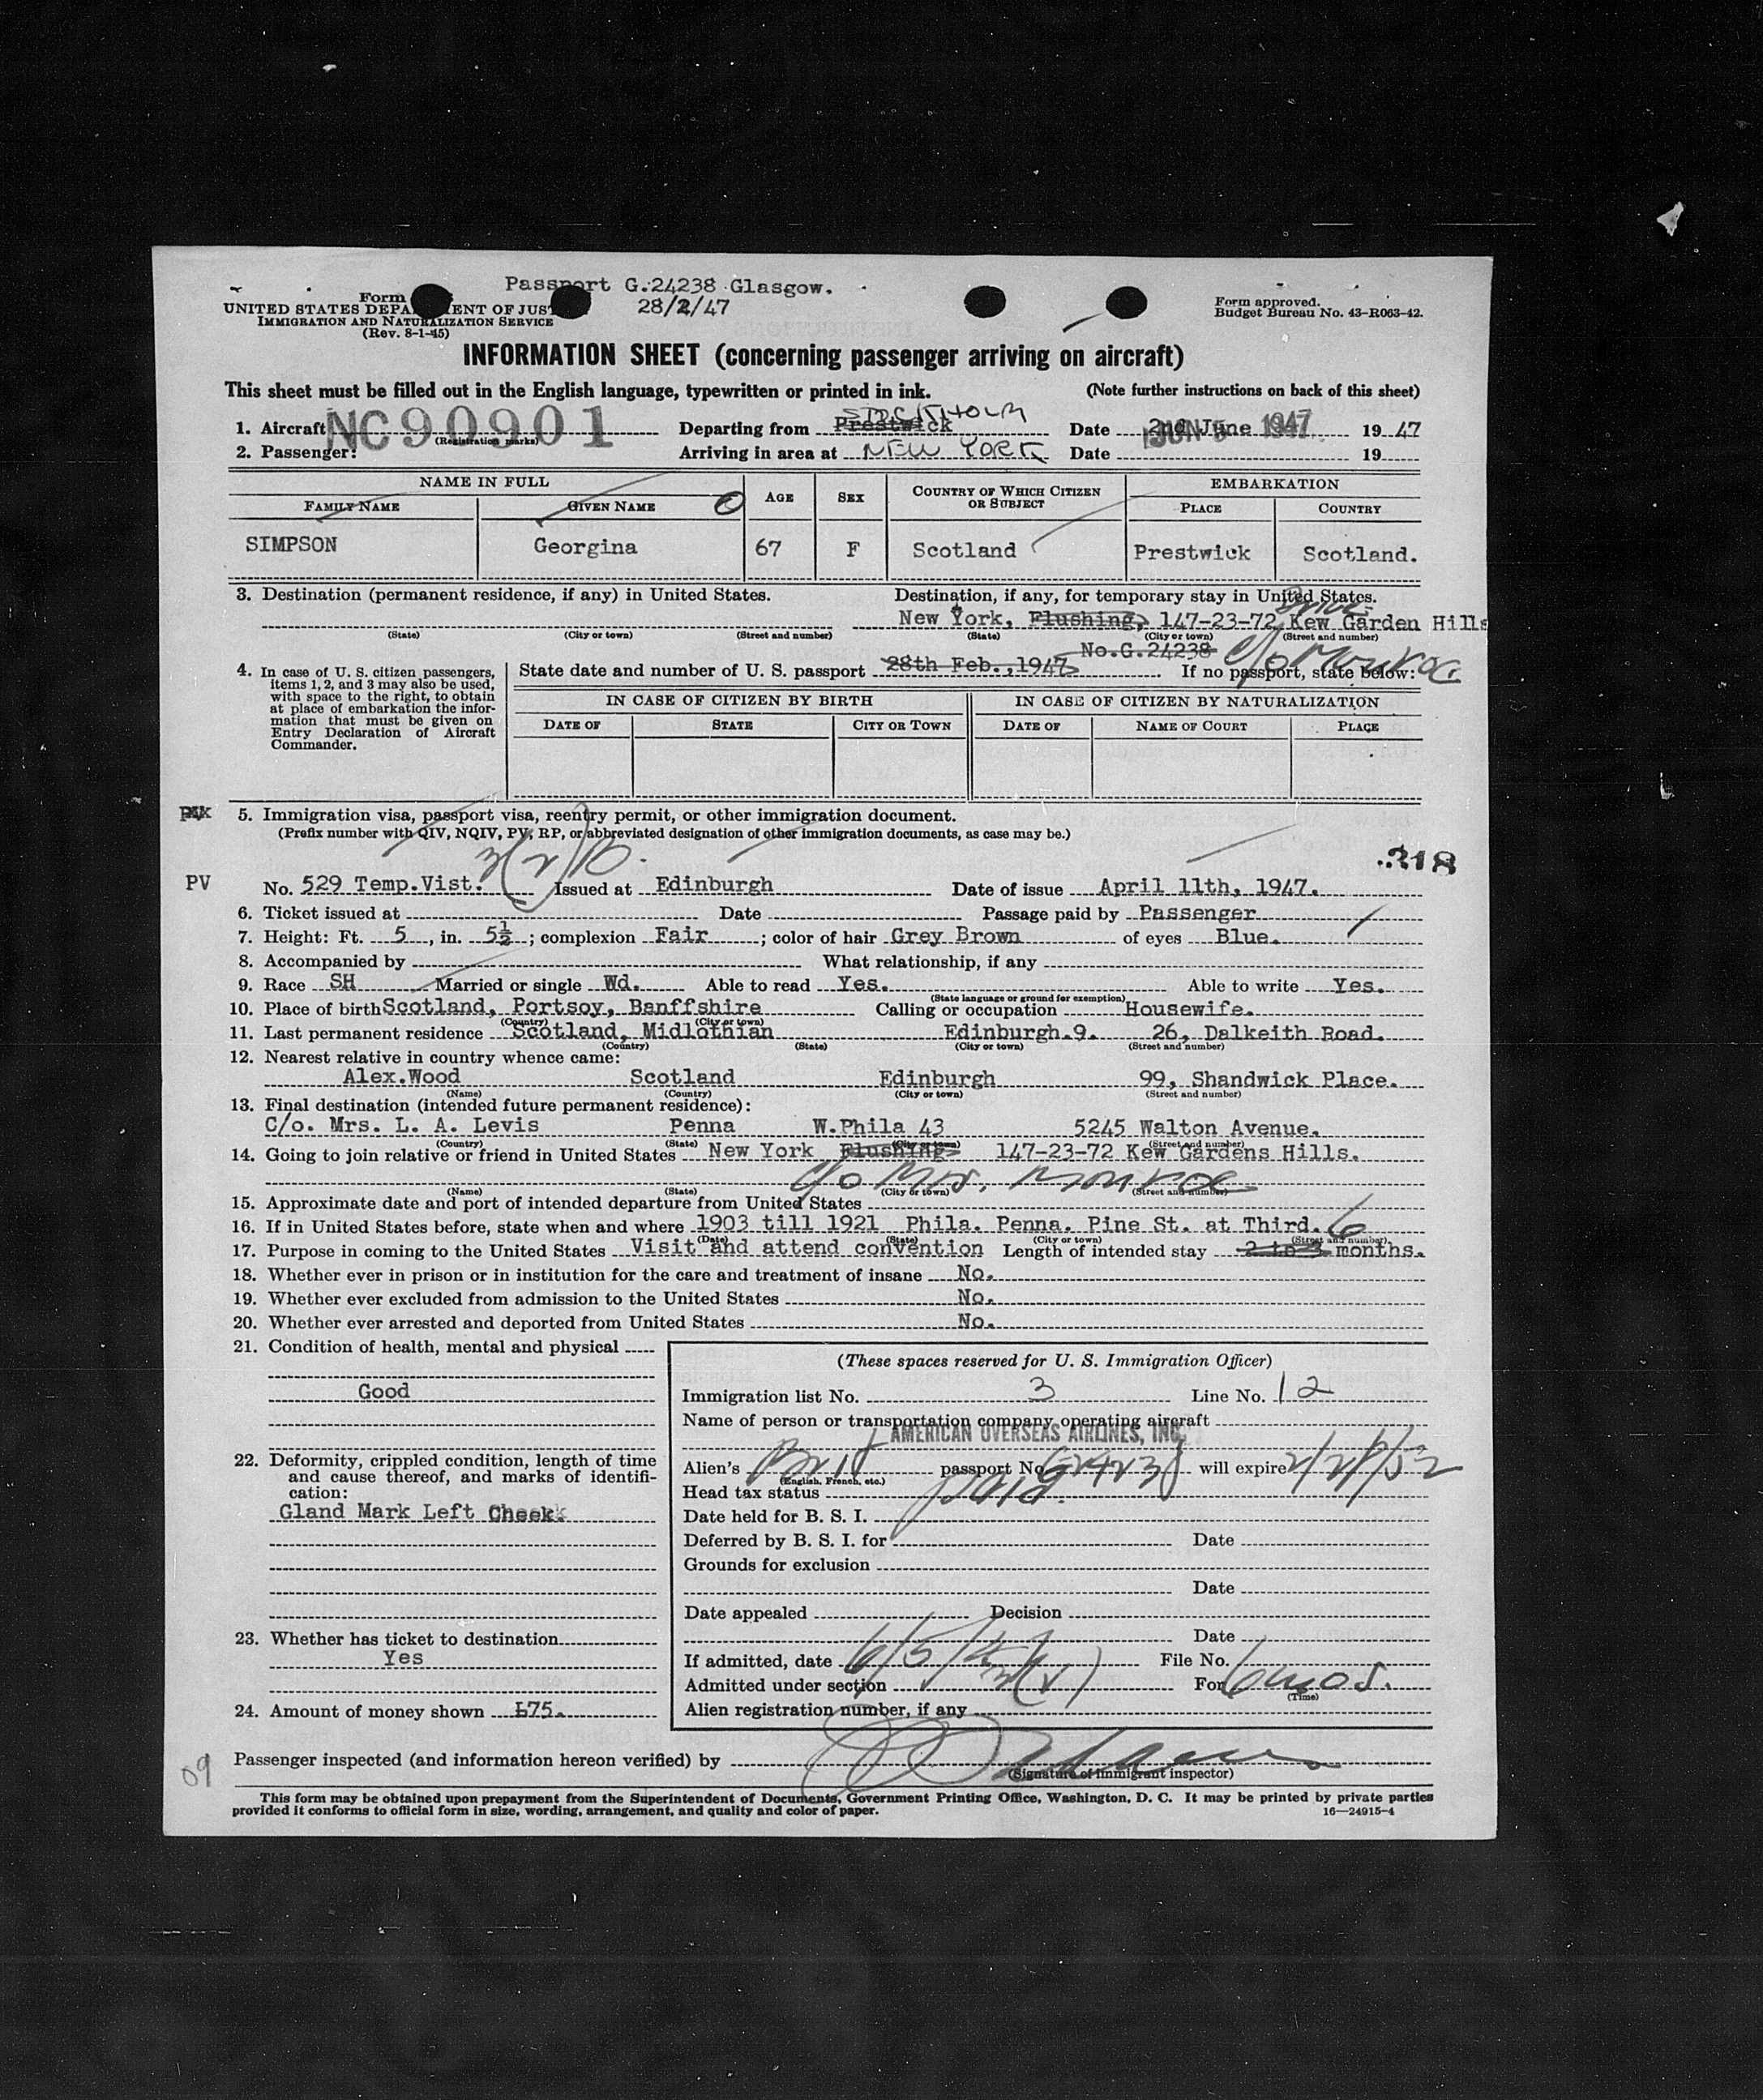 Passport G.24238 Glasgow.
28/2/47
Form
UNITED STATES DEPARTMENT OF JUSTICE
IMMIGRATION AND NATURALIZATION SERVICE
(Rev. 8-1-45)
Form approved.
Budget Bureau No. 43-R063-42.
INFORMATION SHEET (concerning passenger arriving on aircraft)
This sheet must be filled out in the English language, typewritten or printed in ink. (Note further instructions on back of this sheet)
STOCKHOLM
1. Aircraft NC90901 Departing from Prestwick Date 2nd June 1947 JUN 5 1947 19 47
(Registration marks)
2. Passenger: Arriving in area at NEW YORK Date 19
NAME IN FULL AGE SEX COUNTRY OF WHICH CITIZEN OR SUBJECT EMBARKATION
FAMILY NAME GIVEN NAME PLACE COUNTRY
SIMPSON Georgina 67 F Scotland Prestwick Scotland.
3. Destination (permanent residence, if any) in United States. Destination, if any, for temporary stay in United States.
Drive
New York, Flushing, 147-23-72 Kew Garden Hills
(State) (City or town) (Street and number) (State) (City or town) (Street and number)
No.G.24238 c/o Monroe
4. In case of U. S. citizen passengers, items 1, 2, and 3 may also be used, with space to the right, to obtain at place of embarkation the information that must be given on Entry Declaration of Aircraft Commander.
State date and number of U. S. passport 28th Feb.,1947 If no passport, state below:
IN CASE OF CITIZEN BY BIRTH IN CASE OF CITIZEN BY NATURALIZATION
DATE OF STATE CITY OR TOWN DATE OF NAME OF COURT PLACE
5. Immigration visa, passport visa, reentry permit, or other immigration document.
(Prefix number with QIV, NQIV, PV, RP, or abbreviated designation of other immigration documents, as case may be.)
3(2)
318
PV No. 529 Temp.Vist. Issued at Edinburgh Date of issue April 11th, 1947.
6. Ticket issued at Date Passage paid by Passenger
7. Height: Ft. 5, in. 5½; complexion Fair; color of hair Grey Brown of eyes Blue.
8. Accompanied by What relationship, if any
9. Race SH Married or single Wd. Able to read Yes. Able to write Yes.
(State language or ground for exemption)
10. Place of birth Scotland, Portsoy, Banffshire Calling or occupation Housewife.
(Country) (City or town)
11. Last permanent residence Scotland, Midlothian Edinburgh.9. 26, Dalkeith Road.
(Country) (State) (City or town) (Street and number)
12. Nearest relative in country whence came:
Alex.Wood Scotland Edinburgh 99, Shandwick Place.
(Name) (Country) (City or town) (Street and number)
13. Final destination (intended future permanent residence):
C/o. Mrs. L. A. Levis Penna W.Phila 43 5245 Walton Avenue.
(Country) (State) (City or town) (Street and number)
14. Going to join relative or friend in United States New York Flushing 147-23-72 Kew Gardens Hills.
c/o Mrs. Monroe
(Name) (State) (City or town) (Street and number)
15. Approximate date and port of intended departure from United States
16. If in United States before, state when and where 1903 till 1921 Phila. Penna. Pine St. at Third.
(Date) (State) (City or town) (Street and number)
17. Purpose in coming to the United States Visit and attend convention Length of intended stay 2 to 3 6 months.
18. Whether ever in prison or in institution for the care and treatment of insane No.
19. Whether ever excluded from admission to the United States No.
20. Whether ever arrested and deported from United States No.
21. Condition of health, mental and physical
Good
22. Deformity, crippled condition, length of time and cause thereof, and marks of identification:
Gland Mark Left Cheek.
23. Whether has ticket to destination
Yes
24. Amount of money shown £75.
(These spaces reserved for U. S. Immigration Officer)
Immigration list No. 3 Line No. 12
Name of person or transportation company operating aircraft
AMERICAN OVERSEAS AIRLINES, INC.
Alien's Brit passport No. G24238 will expire 2/28/52
(English, French, etc.)
Head tax status paid.
Date held for B. S. I.
Deferred by B. S. I. for Date
Grounds for exclusion
Date
Date appealed Decision
Date
If admitted, date 6/5/47 File No.
Admitted under section 3(2) For 6 mos.
(Time)
Alien registration number, if any
09
Passenger inspected (and information hereon verified) by
(Signature of immigrant inspector)
This form may be obtained upon prepayment from the Superintendent of Documents, Government Printing Office, Washington, D. C. It may be printed by private parties
provided it conforms to official form in size, wording, arrangement, and quality and color of paper. 16—24915-4